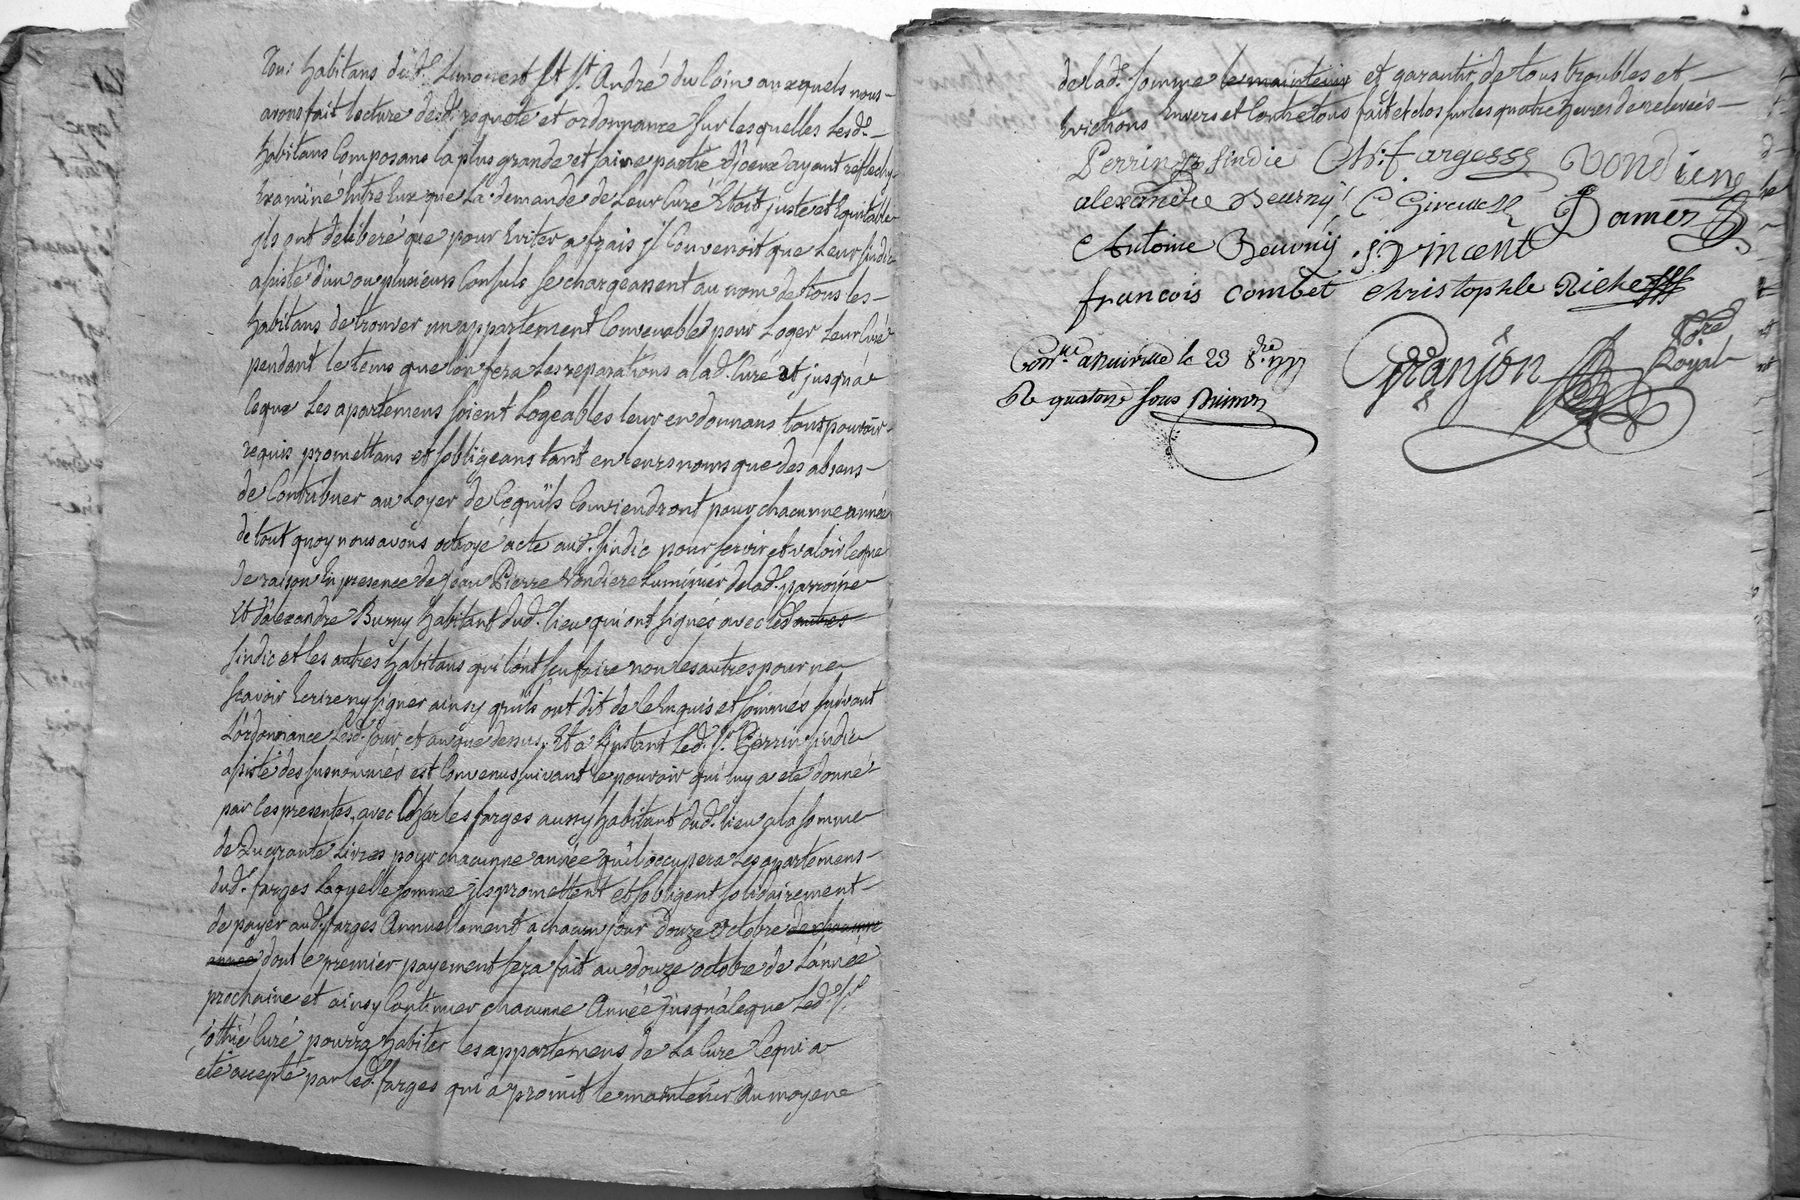 Tous habitans du d. Limonest et St. André du Coin auxquels nous
avons fait lecture desd. requete et ordonnance sur lesquelles lesd.
habitans composans la plus grande et saine partie d'iceux ayant reflechy
Examiné Entre Eux que la demande de leur Curé Etoit juste et Equitable
jls ont deliberé que pour Eviter a frais jl Convenoit que leur sindic
asisté d'un ou plusieurs Consuls se chargeassent au nom de tous les
habitans de trouver un appartement Convenable pour Loger Leur Curé
pendant le tems que lon fera Les reparations a lad. Cure et jusqu'a
Ceque Les apartemens soient Logeables leur en donnans tout pouvoir
requis promettans et s'obligeans tant en leurs noms que des absens
de Contribuer au Loyer de Cequ'ils Conviendront pour chacunne année
de tout quoy nous avons octroyé acte aud. sindic pour servir et valoir Ceque
de raison En presence de jean Pierre Vondiere Luminier de lad. parroisse
Et d'alexandre Burny habitant dud. lieu qui ont signés avec led autres
sindic et les autres habitans qui l'ont sçu faire non les autres pour ne
scavoir Ecrire ny signer ainsy qu'ils ont dit de ce Enquis et sommés suivant
L'ordonnance Lesd. jour et an que dessus. Et a L'jnstant Led. Sr. Perrin sindic
asisté des susnommés est Convenu suivant le pouvoir qui luy a eté donné
par Ces presentes, avec Charles farges aussy habitant dud. lieu a la somme
de Quarante Livres pour chacunne année qu'il occupera Les apartemens
dud. farges Laquelle somme jls promettent et s'obligent solidairement
de payer aud. farges Annuellement a chacun jour douze octobre de chacune
année dont le premier payement sera fait au douze octobre de L'année
prochaine et ainsy Continuer chacunne Année jusqu'a Ceque Led. Sr.
Curé pourra habiter les appartemens de La Cure Cequi a
eté accepté par led. farges qui a promit le maintenir Au moyene
de lad. somme le maintenir et garantir de tous troubles et
Evictions Envers et Contre tous fait et clos sur les quatre heures de relevées
Perrin sindic Ch. farges Vondiere
alexandre Beurny C Giraud Damer
Antoine Beurny J. Vincent
francois combet christophle Riche
Con.lle a Neuville le 23 8.bre 1777
Re quatorze sous
Granjon N.re Royal